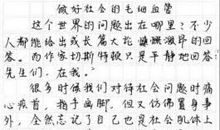 做好社会的毛细血管
这个世界的问题出在哪里？不少
人都能给出成长篇大论 慷慨激昂的回
答。而作家切斯特顿只是平静地回答：
先生们，在我。"
很多时候我们对待社会问题时痛
心疾首，指手画脚，但又仿佛置身事
外，全然忘记了自己也是社会肌体上